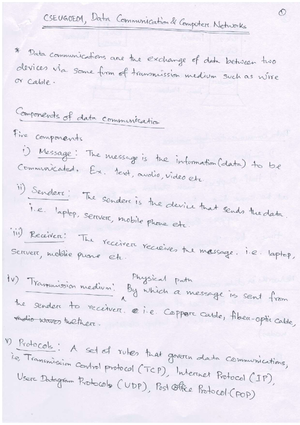 CSEUGCE01, Data Communication & Computer Networks
①
* Data communications are the exchange of data between two
devices via some form of transmission medium such as wire
or cable.
Components of data communication
Five components
i) Message: The message is the information (data) to be
communicated. Ex. text, audio, video etc
ii) Senders: The senders is the device that sends the data
i.e. laptop, servers, mobile phone etc
iii) Receiver: The receiver receives the message. i.e. laptop,
servers, mobile phone etc.
Physical path
iv) Transmission medium: ^ By which a message is sent from
the sender to receiver. i.e Copper cable, fiber-optic cable,
v) Protocols: A set of rules that govern data communications,
i.e Transmission Control protocol (TCP), Internet Protocol (IP),
User Datagram Protocols (UDP), Post Office Protocol (POP)